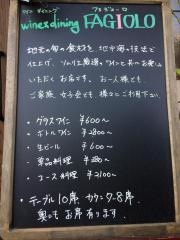 ワイン ダイニング ファジョーロ
wine&dining FAGIOLO
地元の旬の食材を地中海の技法で
仕上げ、ソムリエ厳選のワインと共にお楽しみ
いただくお店です。お一人様でも、
ご家族、女子会でも、様々にご利用下さい。
・グラスワイン ¥600〜
・ボトルワイン ¥2800〜
・生ビール ¥600〜
・単品料理 ¥280〜
・コース料理 ¥2100〜
・テーブル10席 カウンター8席
奥にもお席有ります。